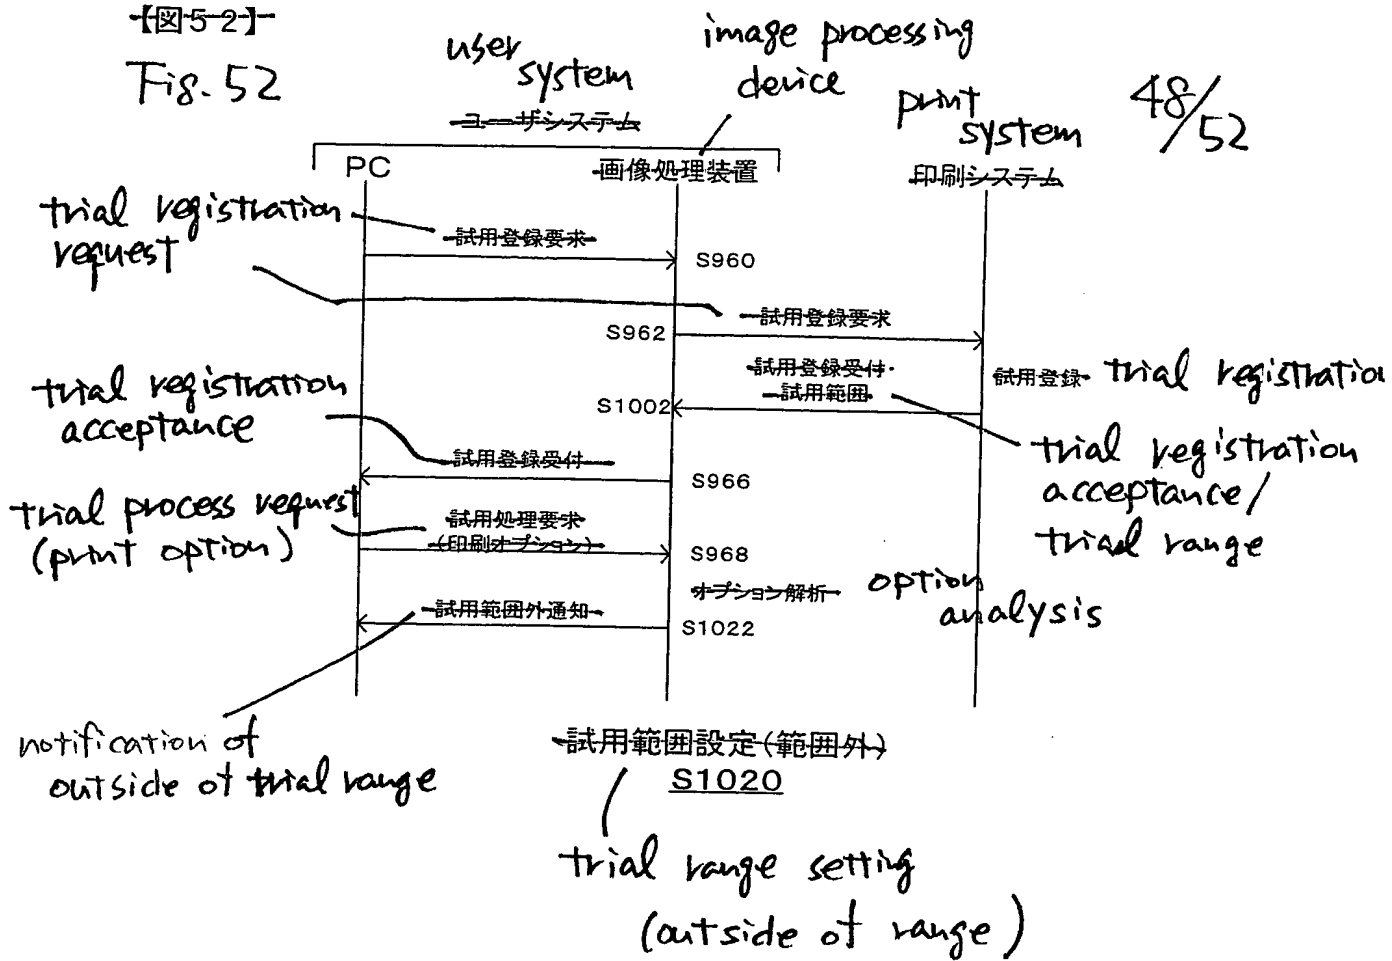 【図52】
Fig. 52
user
system
image processing
device
print
system
48/52
ユーザシステム
PC
画像処理装置
印刷システム
trial registration
request
試用登録要求
S960
試用登録要求
S962
試用登録受付・
試用範囲
試用登録
trial registration
S1002
trial registration
acceptance
試用登録受付
S966
trial registration
acceptance/
trial range
trial process request
(print option)
試用処理要求
(印刷オプション)
S968
オプション解析
option
analysis
試用範囲外通知
S1022
notification of
outside of trial range
試用範囲設定(範囲外)
S1020
trial range setting
(outside of range)